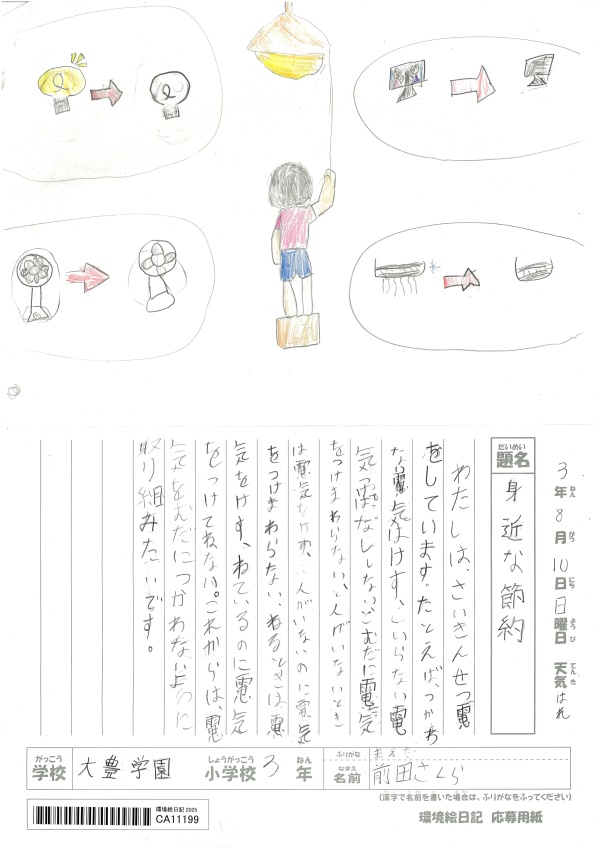 3年8月10日日曜日 天気はれ
ねん がつ にち ようび てんき
だいめい
題名
身近な節約
わたしは、さいきんせつ電
をしています。たとえば、つかわ
ない電気はけす、いらない電
気っぱなししない、むだに電気
をつけまわらない、人がいないとき
は電気をけす、人がいないのに電気
をつけまわらない、ねるときは電
気をけす、ねているのに電気
をつけてねない。これからは、電
気をむだにつかわないように
取り組みたいです。
がっこう
学校
大豊学園
しょうがっこう
小学校
3
ねん
年
ふりがな
まえだ
なまえ
名前
前田さくら
(漢字で名前を書いた場合は、ふりがなをふってください)
環境絵日記 2025
CA11199
環境絵日記 応募用紙